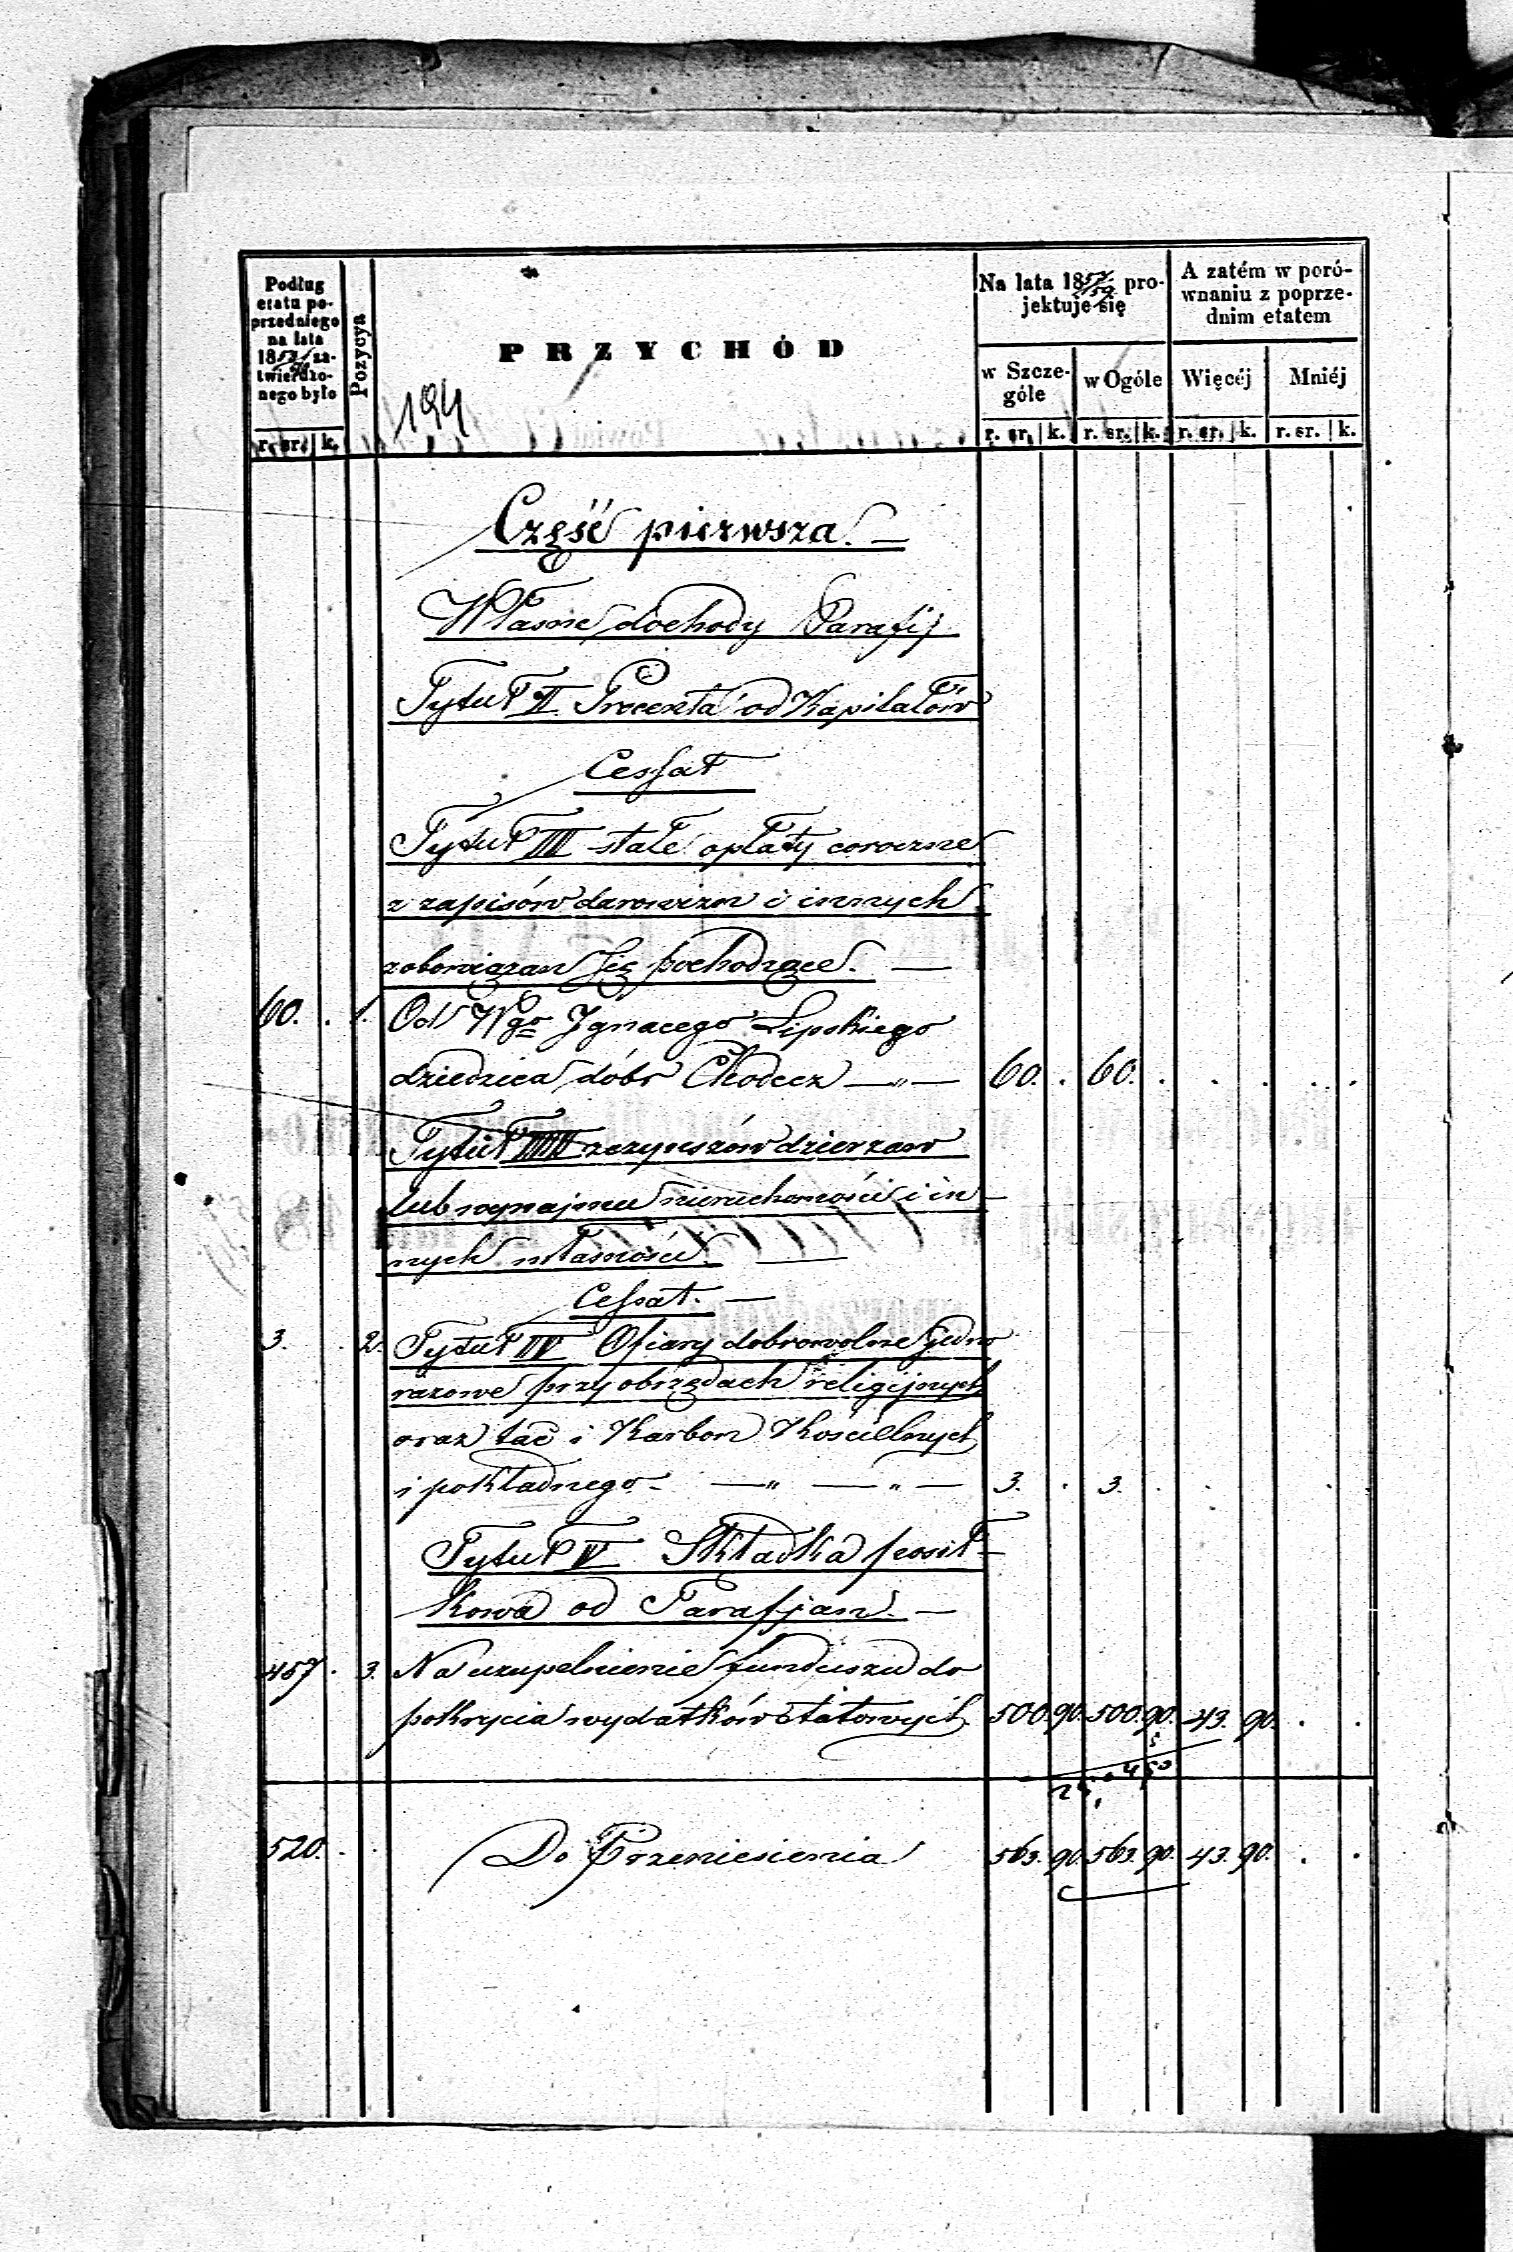 Podług etatu poprzedniego na lata 18 zatwierdzonego było
Pozycya
PRZYCHÓD
Na lata 1857/59 projektuje się
A zatém w porównaniu z poprzednim etatem
w Szczególe
w Ogóle
Więcéj
Mniéj
r. sr. k.
r. sr. k. r. sr. k. r. sr. k. r. sr. k.
194
Część pierwsza. —
Własne dochody Parafij
Tytuł II Procenta od Kapitałów
Cessat
Tytuł III stałe opłaty coroczne
z zapisów darowizn i innych
zobowiązań się pochodzące. —
60. . 1. Od Wgo Ignacego Lipskiego
dziedzica dóbr Chodecz —„— 60. . 60. . . . . .
Tytuł IIII z czynszów dzierzaw
lub wynajmu nieruchomości i in-
nych własności. —
Cessat. —
3. . 2. Tytuł IV Ofiary dobrowolne jedno
razowe przy obrzędach religijnych
oraz tac i Karbon Kościelnych
i pokładnego - —„ —„— 3. . 3. . . .
Tytuł V Składka posił-
kowa od Parafjan. —
457. 3. Na uzupełnienie funduszu do
pokrycia wydatków etatowych 500. 90. 500. 90. 43. 90. . .
520. . . Do Przeniesienia 563. 90. 563. 90. 43. 90. . .